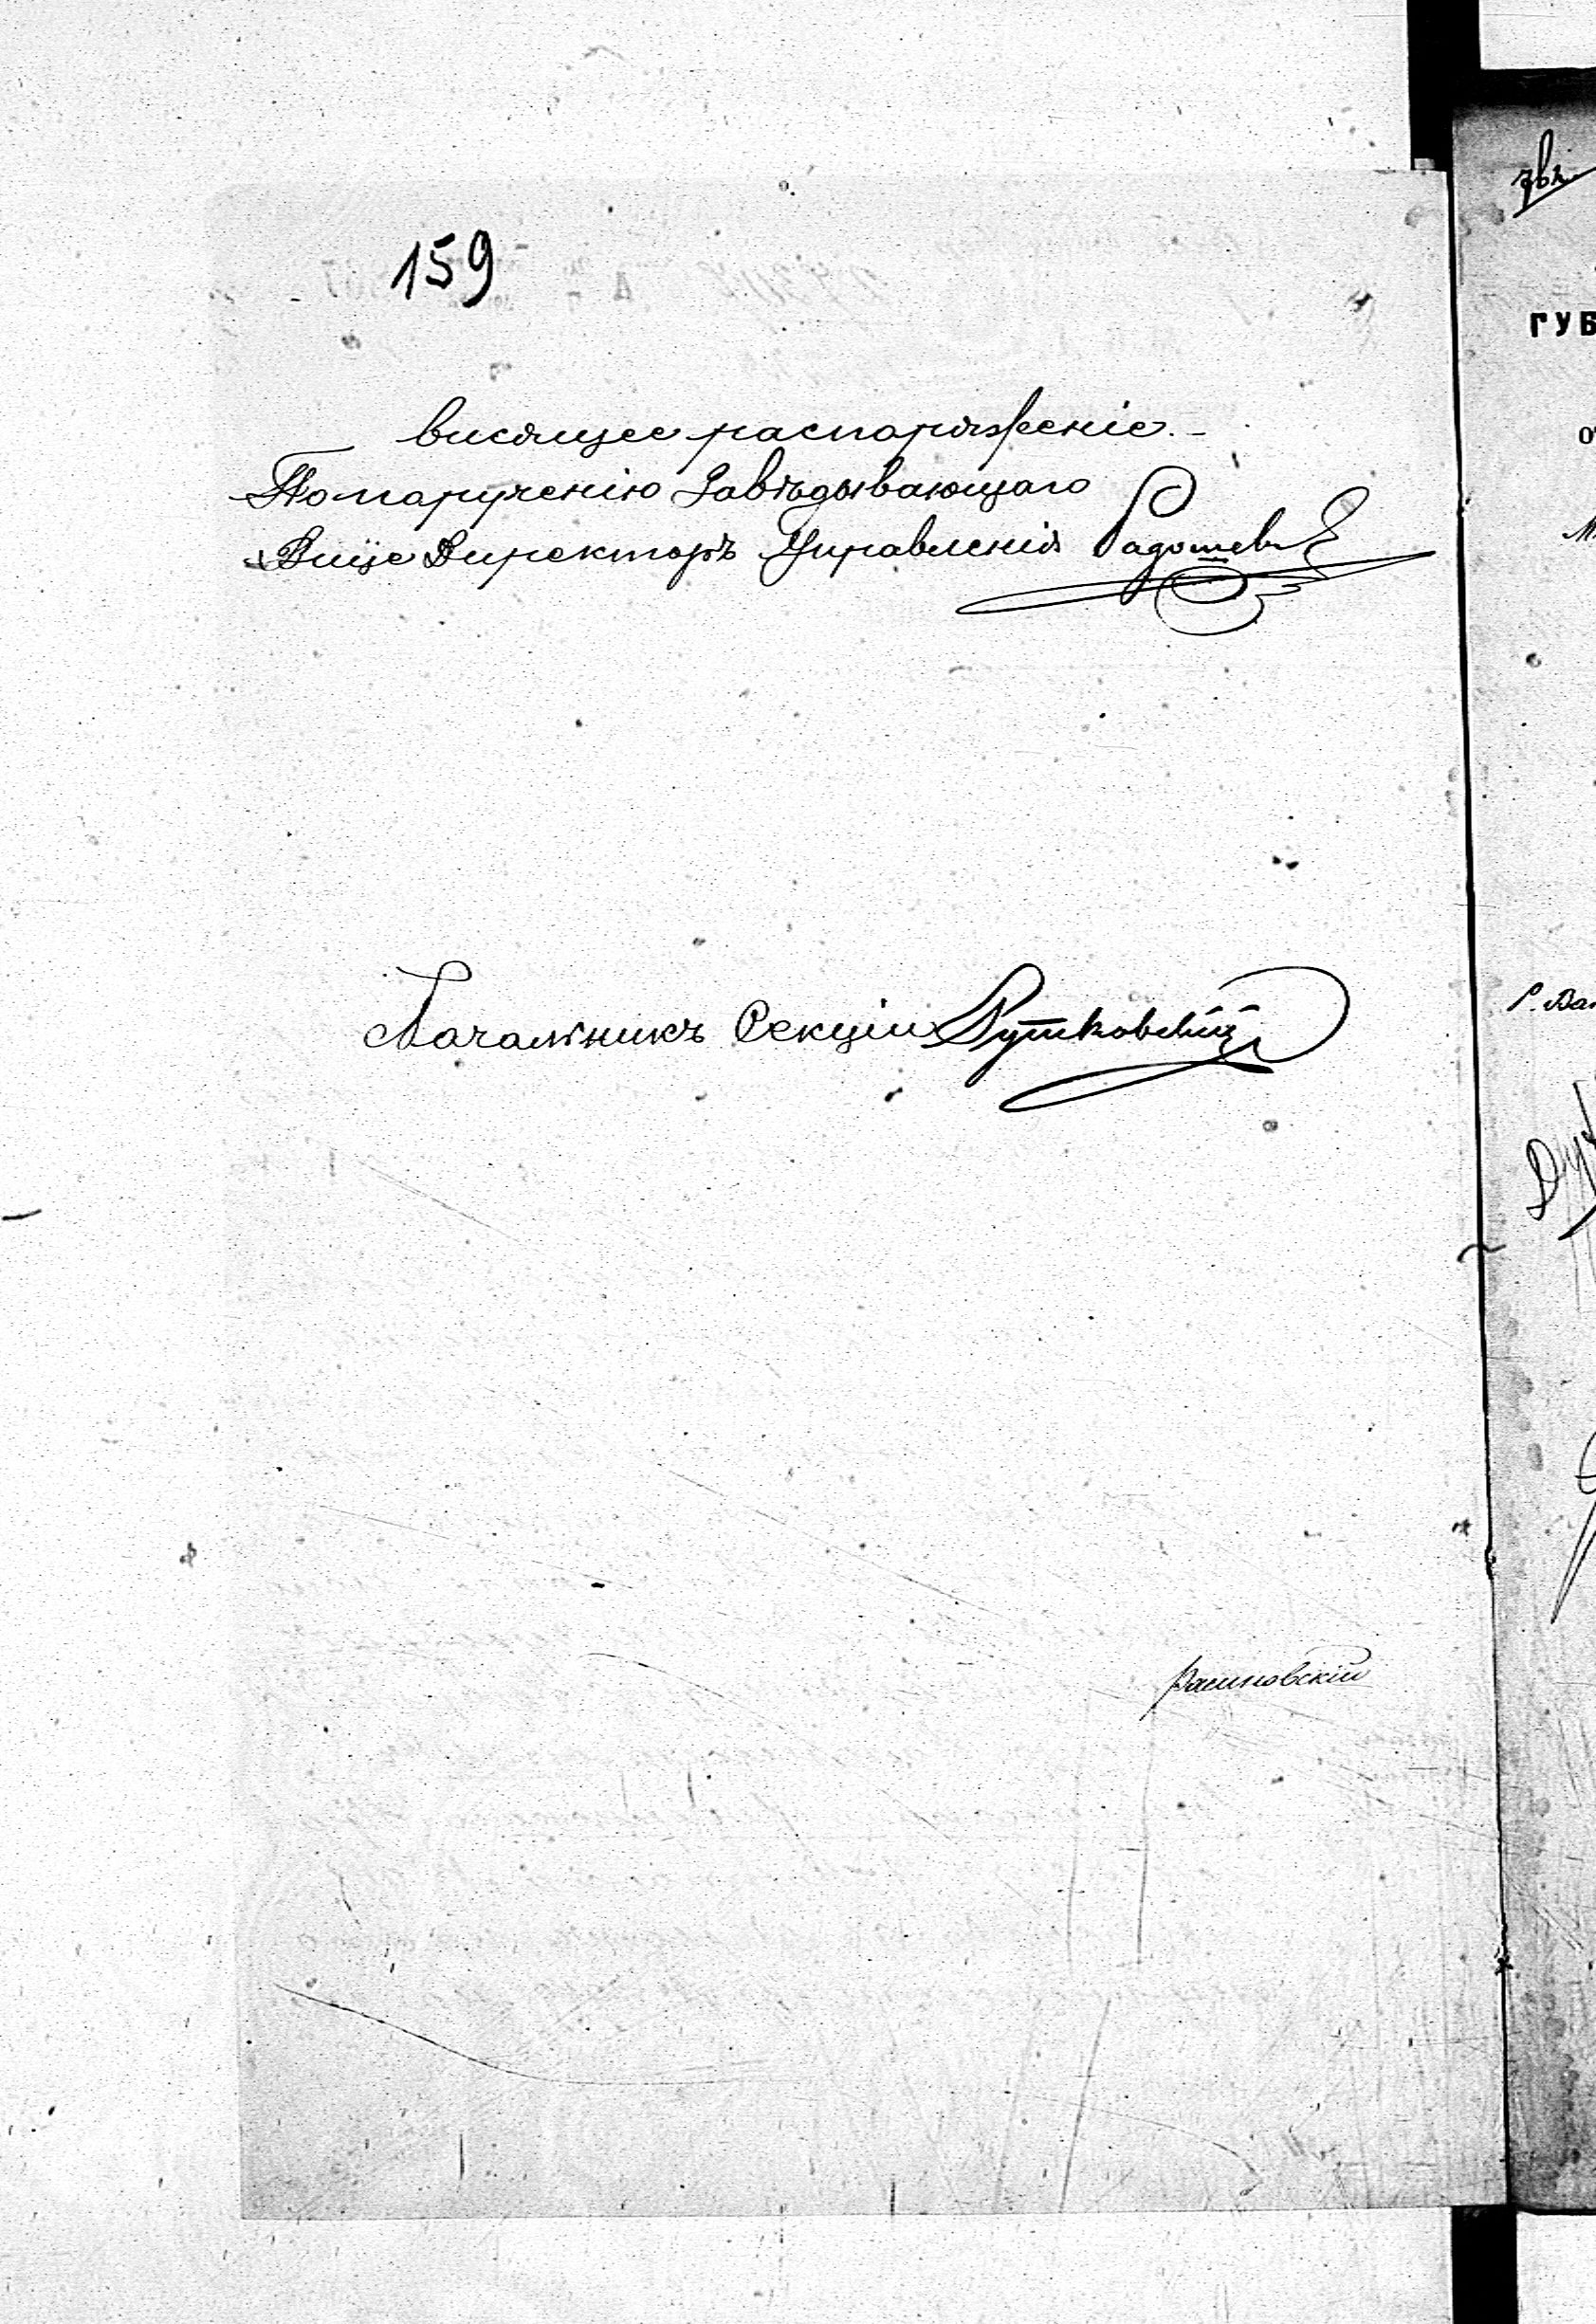 159
висящее распоряженіе.-
По порученію Завѣдывающаго
Вице Директоръ Управленія Радошевъ
Начальникъ Секціи Рутковскій
Рашновскій
ГУБ